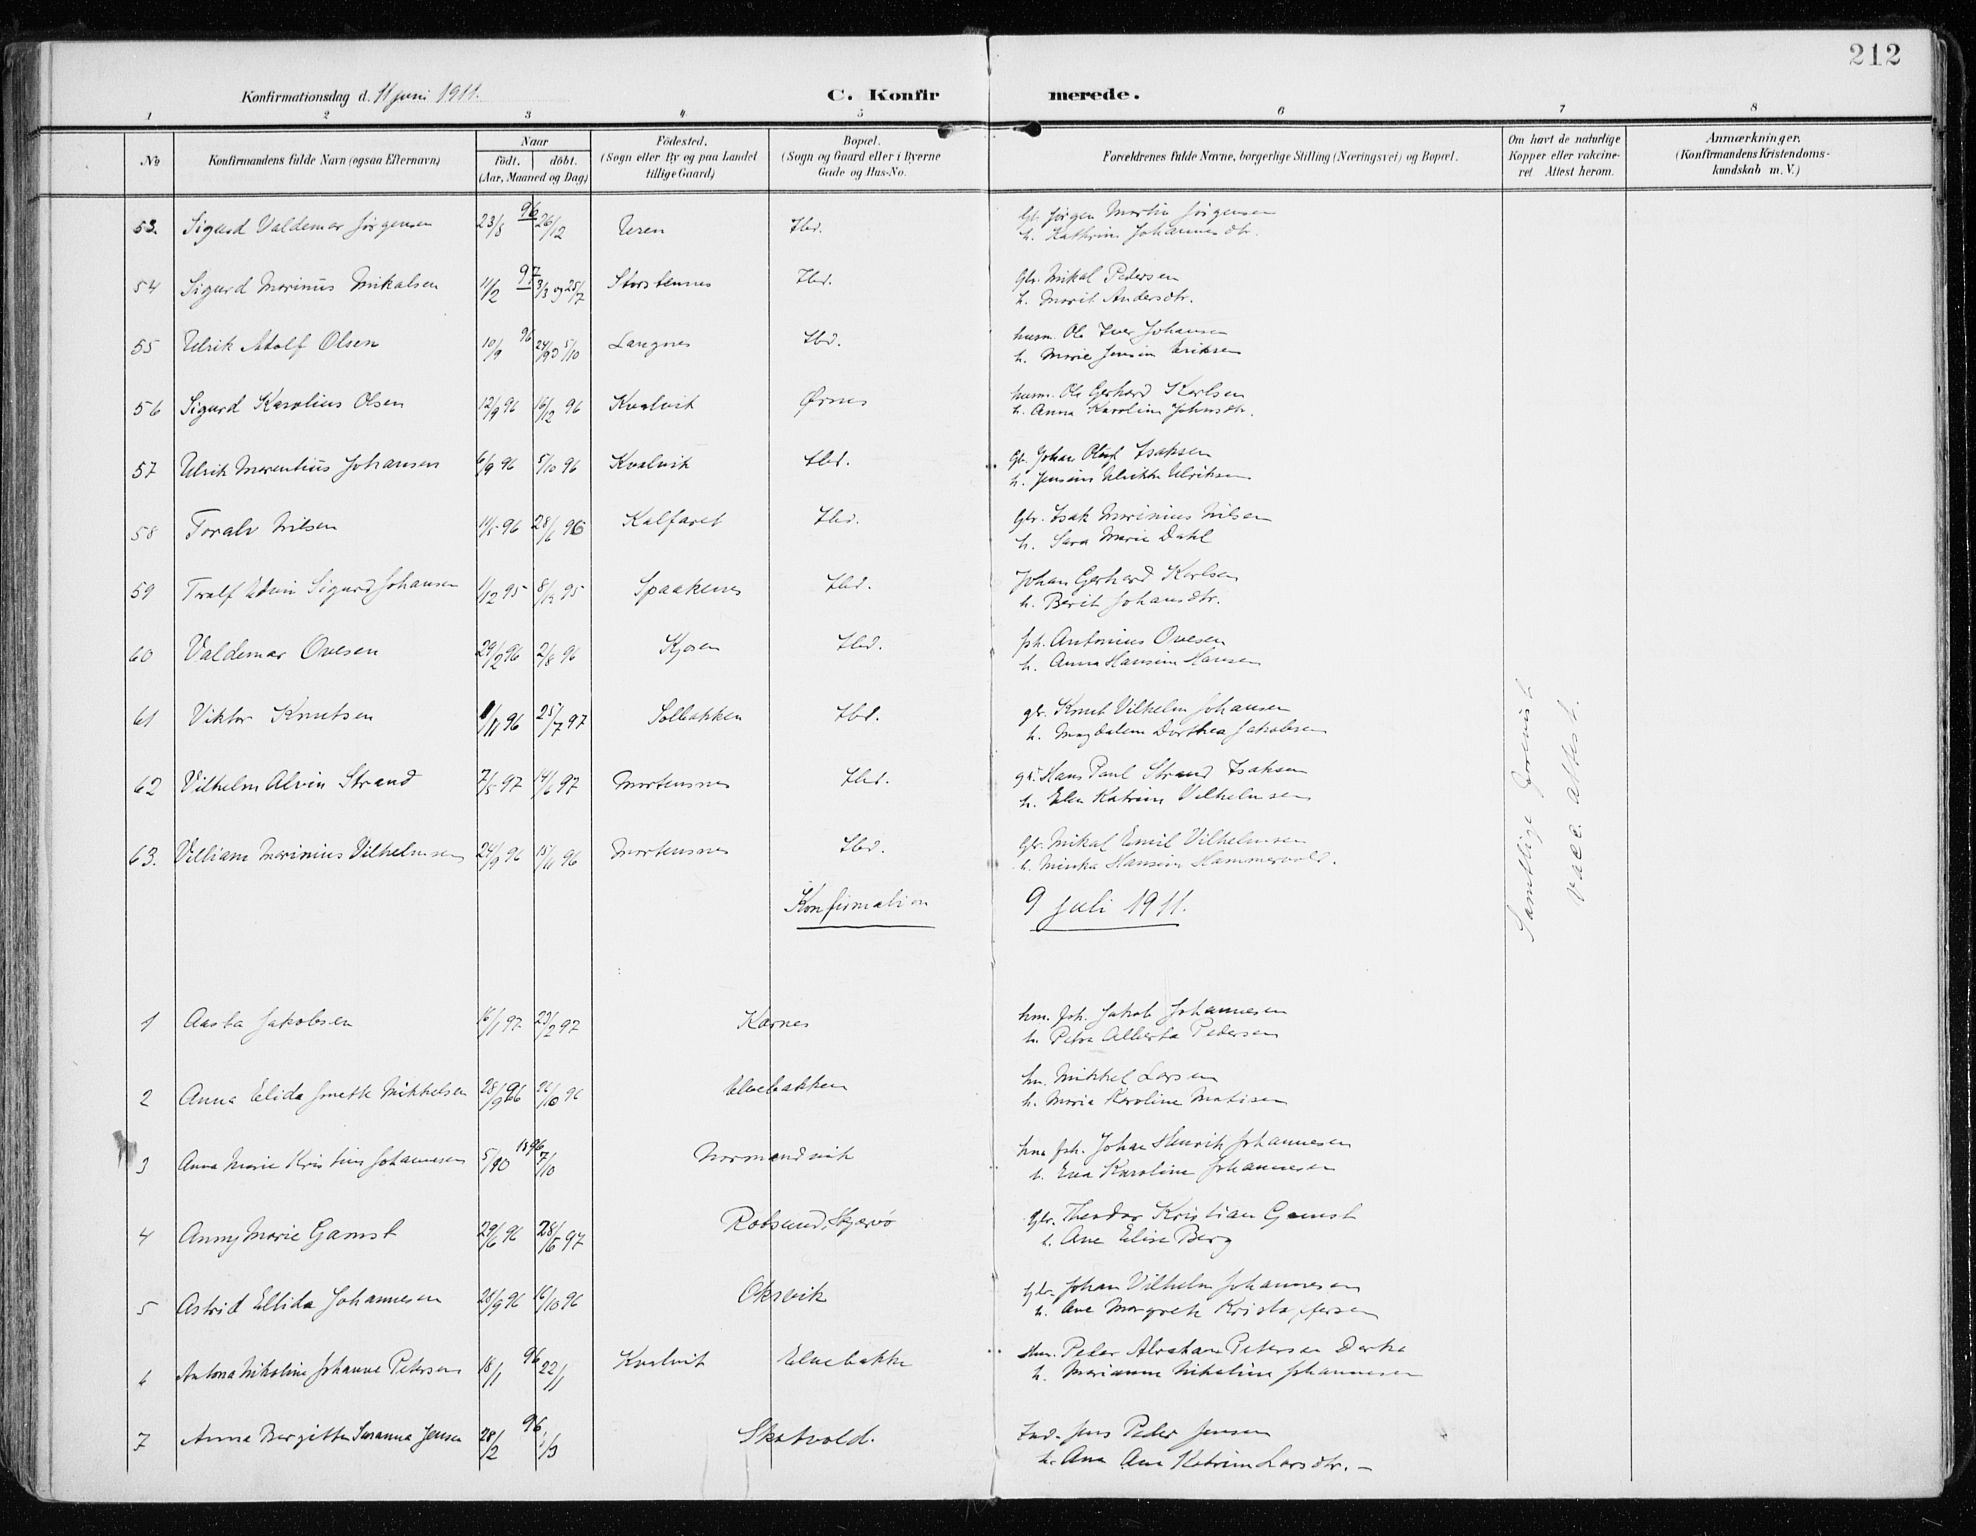 212
Konfirmationsdag d. 11 juni 1911.
C. Konfirmerede.
1 2 3 4 5 6 7 8
No
Konfirmandens fulde Navn (ogsaa Efternavn)
Naar
födt. döbt.
(Aar, Maaned og Dag)
Födested.
(Sogn eller By og paa Landet
tillige Gaard)
Bopæl.
(Sogn og Gaard eller i Byerne
Gade og Hus-No.
Forældrenes fulde Navne, borgerlige Stilling (Næringsvei) og Bopæl.
Om havt de naturlige
Kopper eller vakcine-
ret Attest herom.
Anmærkninger,
(Konfirmandens Kristendoms-
kundskab m. V.)
53. Sigurd Valdemar Jørgensen 23/8 96 26/12 Uren Ibd. Gb. Jørgen Martin Jørgensen
h. Kathrine Johannesdtr.
54 Sigurd Marinius Mikalsen 11/2 97 3/3 og 25/7 Storstennes Ibd. Gbr. Mikal Pedersen
h. Marit Andersdtr.
55 Ulrik Adolf Olsen 10/9 96 5/10 Langnes Ibd. husm. Ole Iver Johansen
h. Marie Jensine Eriksen
56 Sigurd Karolius Olsen 12/9 96 16/12 96 Kvalvik Ørnes husm. Ole Gerhard Karlsen
h. Anna Karoline Johnsdtr.
57 Ulrik Marentius Johansen 6/9 96 5/10 96 Kvalvik Ibd. Gb. Johan Oluf Isaksen
h. Jensine Ulrikke Ulriksen
58 Toralv Nilsen 11/5 96 28/6 96 Kalfaret Ibd. Gbr. Isak Marinius Nilsen
h. Sara Marie Dahl
59 Toralf Edvin Sigurd Johansen 1/12 95 8/12 95 Spaakenes Ibd. Johan Gerhard Karlsen
h. Berit Johansdtr.
60 Valdemar Ovesen 29/2 96 2/8 96 Kjosen Ibd. fsk. Antonius Ovesen
h. Anna Hansine Hansen
61 Viktor Knutsen 1/11 96 25/7 97 Solbakken Ibd. gbr. Knut Vilhelm Johansen
h. Magdalena Dorthea Jakobsen
62 Vilhelm Alvin Strand 7/5 97 14/6 97 Mortensnes Ibd. gbr. Hans Paul Strand Isaksen
h. Elen Katrine Vilhelmsen
63. Villiam Marinius Vilhelmsen 24/9 96 15/11 96 Mortensnes Ibd. Gbr. Mikal Emil Vilhelmsen
h. Minka Hansine Hammervold.
Samtlige forevist
vacc. attest.
Konfirmation 9 juli 1911.
1 Aasta Jakobsen 16/1 97 23/2 97 Karnes hm. fsk. Jakob Johannesen
h. Petra Alberta Pedersen
2 Anna Elida Jonette Mikkelsen 28/9 96 26/10 96 Elvebakken hm. Mikkel Larsen
h. Maria Karoline Matisen
3 Anna Marie Kristine Johannesen 5/10 1896 7/10 Normandvik hm. fsk. Johan Henrik Johannesen
h. Eva Karoline Johannesen
4 Anny Marie Gamst 29/6 96 28/5 97 Rotsund, Skjervø gbr. Theodor Kristian Gamst
h. Ane Elise Berg
5 Astrid Ellida Johannesen 28/9 96 16/10 96 Oksvik Gbr. Johan Vilhelm Johannesen
h. Ane Margreth Kristoffersen
6 Antona Nikoline Johanne Petersen 18/1 96 22/1 Kvalvik Elvebakke hm. Peder Abraham Petersen Dorka
h. Marianne Nikoline Johannesen
7 Anna Bergitte Susanna Jensen 28/2 96 1/3 Skatvold. Ind. Jens Peder Jensen
h. Ana Ane Katrine Larsdtr. –